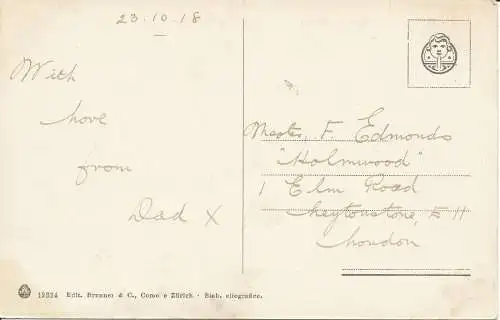 23.10.18
With
love
from
Dad X
Master, F. Edmonds
"Holmwood"
1 Elm Road
Leytonstone, E 11
London
12324 Edit. Brunner & C., Como e Zürich · Stab. eliografico.